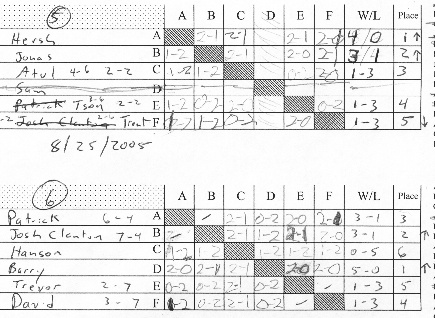 5 A B C D E F W/L Place
Hersh A 2-1 2-1 2-1 2-0 4/0 1↑
Jonas B 1-2 2-1 2-0 2-1 3/1 2↑
Atul 4-6 2-2 C 1-2 1-2 2-0 1-3 3
Sam D
Patrick Tson 2-2 E 1-2 0-2 0-2 1-3 4
Josh Clanton Trent F 1-2 2-0 1-3 5↓
8/25/2005
6 A B C D E F W/L Place
Patrick 6-4 A 2-1 0-2 2-0 3-1 3
Josh Clanton 7-4 B 2-1 1-2 2-1 2-0 3-1 2↑
Hanson C 1-2 1-2 1-2 1-2 0-5 6
Barry D 2-0 2-1 2-1 2-0 2-0 5-0 1↑
Trevor 2-7 E 0-2 0-2 2-1 0-2 1-3 5
David 3-7 F 0-2 0-2 2-1 0-2 1-3 4